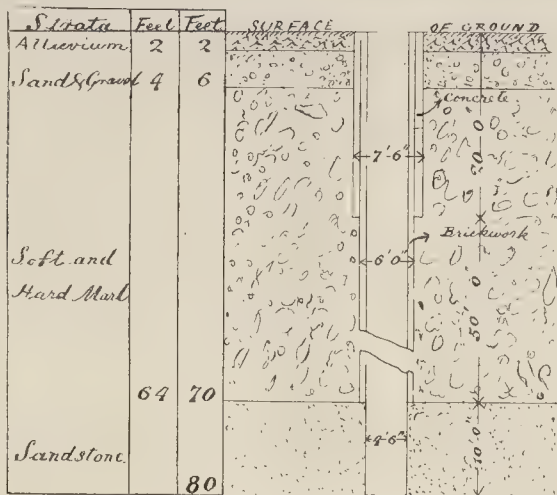 Strata Feet Feet
Alluvium 2 2
Sand & Gravel 4 6
Soft and
Hard Marl
64 70
Sandstone
80
SURFACE OF GROUND
Concrete
7'-6"
20'-0"
Brickwork
6'-0"
50'-0"
4-6"
10'-0"